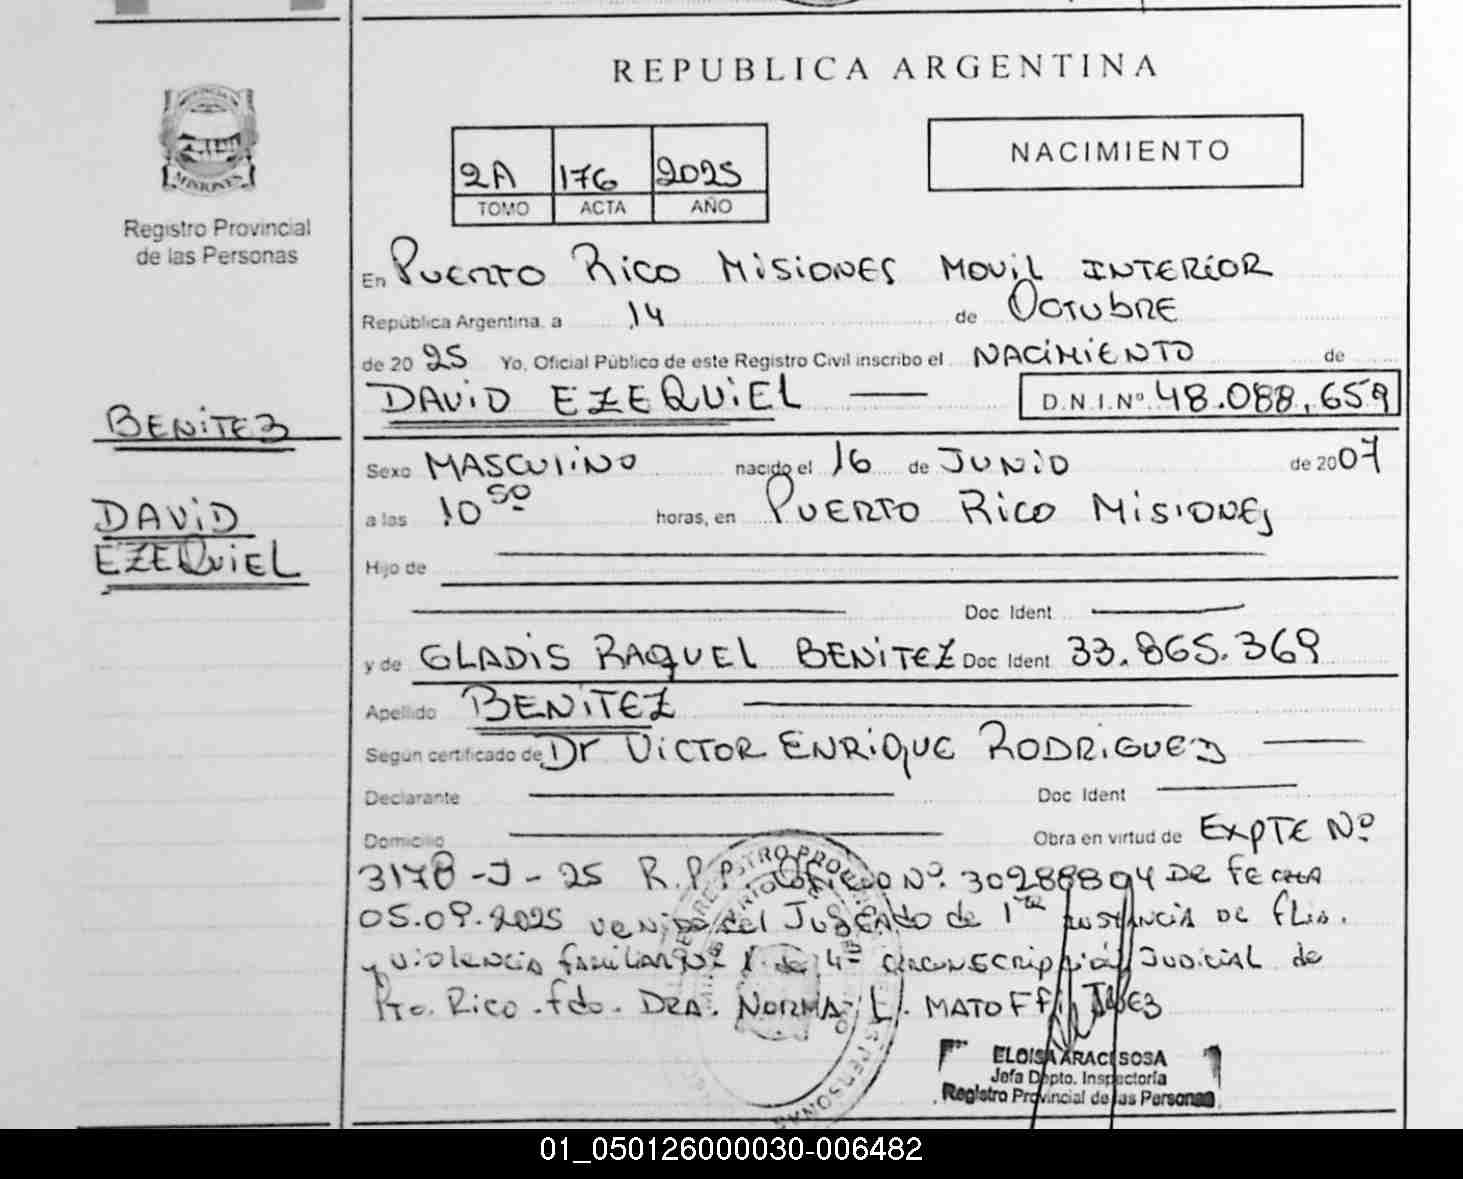 REPUBLICA ARGENTINA
2A 176 2025
TOMO ACTA AÑO
NACIMIENTO
MISIONES
Registro Provincial
de las Personas
BENITEZ
DAVID
EZEQUIEL
En PUERTO RICO MISIONES MOVIL INTERIOR
República Argentina, a 14 de OCTUBRE
de 20 25 Yo, Oficial Público de este Registro Civil inscribo el NACIMIENTO de
DAVID EZEQUIEL D.N.I.Nº 48.088.659
Sexo MASCULINO nacido el 16 de JUNIO de 2007
a las 10 50 horas, en PUERTO RICO MISIONES
Hijo de
Doc. Ident
y de GLADIS RAQUEL BENITEZ Doc Ident 33.865.369
Apellido BENITEZ
Según certificado de Dr VICTOR ENRIQUE RODRIGUEZ
Declarante Doc Ident
Domicilio Obra en virtud de EXPTE Nº
3178-J-25 R.P.P. Oficio Nº 30288804 DE FECHA
05.09.2025 venido del Juzgado de 1ra INSTANCIA DE FLIA.
y violencia familiar Nº 1 de 4ª circunscripción JUDICIAL de
Pto. Rico. fdo. DRA. NORMA L. MATOFF
ELOISA ARACI SOSA
Jefa Dpto. Inspectoría
Registro Provincial de las Personas
01_050126000030-006482